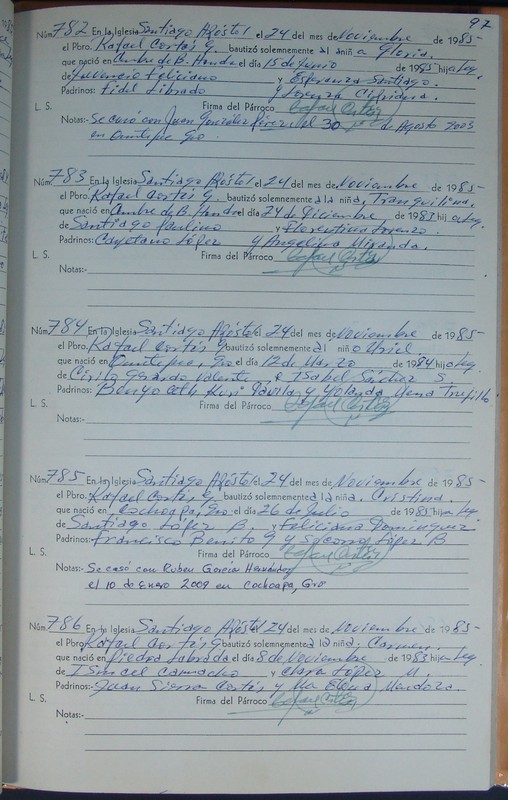 97
Núm. 782 En la Iglesia Santiago Apóstol el 24 del mes de Noviembre de 1985-
el Pbro. Rafael Cortés G. bautizó solemnemente al aniñ a Gloria.
que nació en Cumbre de B. Honda el día 15 de Junio de 1985 hija Leg.
de Juvencio Feliciano y Esperanza Santiago.
Padrinos: Fidel Librado y Lorenza Cifriana.
L. S. Firma del Párroco Rafael Cortés
Notas: Se casó con Juan González Pérez el 30 de Agosto 2003
en Ometepec Gro
Núm. 783 En la Iglesia Santiago Apóstol el 24 del mes de Noviembre de 1985-
el Pbro. Rafael Cortés G. bautizó solemnemente a la niña, Tranquilina.
que nació en Cumbre de B. Honda el día 24 de Diciembre de 1983 hija Leg.
de Santiago Paulino y Florentina Lorenzo.
Padrinos: Cayetano López y Angelina Miranda.
L. S. Firma del Párroco Rafael Cortés
Notas:-
Núm. 784 En la Iglesia Santiago Apóstol el 24 del mes de Noviembre de 1985-
el Pbro. Rafael Cortés G. bautizó solemnemente al niño Uriel.
que nació en Ometepec, Gro el día 12 de Marzo de 1984 hijo Leg.
de Cirilo Gerardo Valente e Isabel Sánchez S.
Padrinos: Dávila y Yolanda Mena Trujillo
L. S. Firma del Párroco Rafael Cortés
Notas:-
Núm. 785 En la Iglesia Santiago Apóstol el 24 del mes de Noviembre de 1985-
el Pbro. Rafael Cortés G. bautizó solemnemente a la niña, Cristina.
que nació en Cochoapa, Gro el día 26 de Julio de 1985 hija Leg.
de Santiago López B. y Feliciana Domínguez.
Padrinos: Francisco Benito G y Socorro López B
L. S. Firma del Párroco Rafael Cortés
Notas:- Se casó con Ruben García Hernández
el 10 de Enero 2009 en Cochoapa, Gro
Núm. 786 En la Iglesia Santiago Apóstol el 24 del mes de Noviembre de 1985-
el Pbro. Rafael Cortés G bautizó solemnemente a la niña, Carmen.
que nació en Piedra Labrada el día 8 de Noviembre de 1983 hija Leg.
de Ismael Camacho y Clara López M.
Padrinos:- Juan Sierra Cortés y Ma Elena Mendoza.
L. S. Firma del Párroco Rafael Cortés
Notas:-